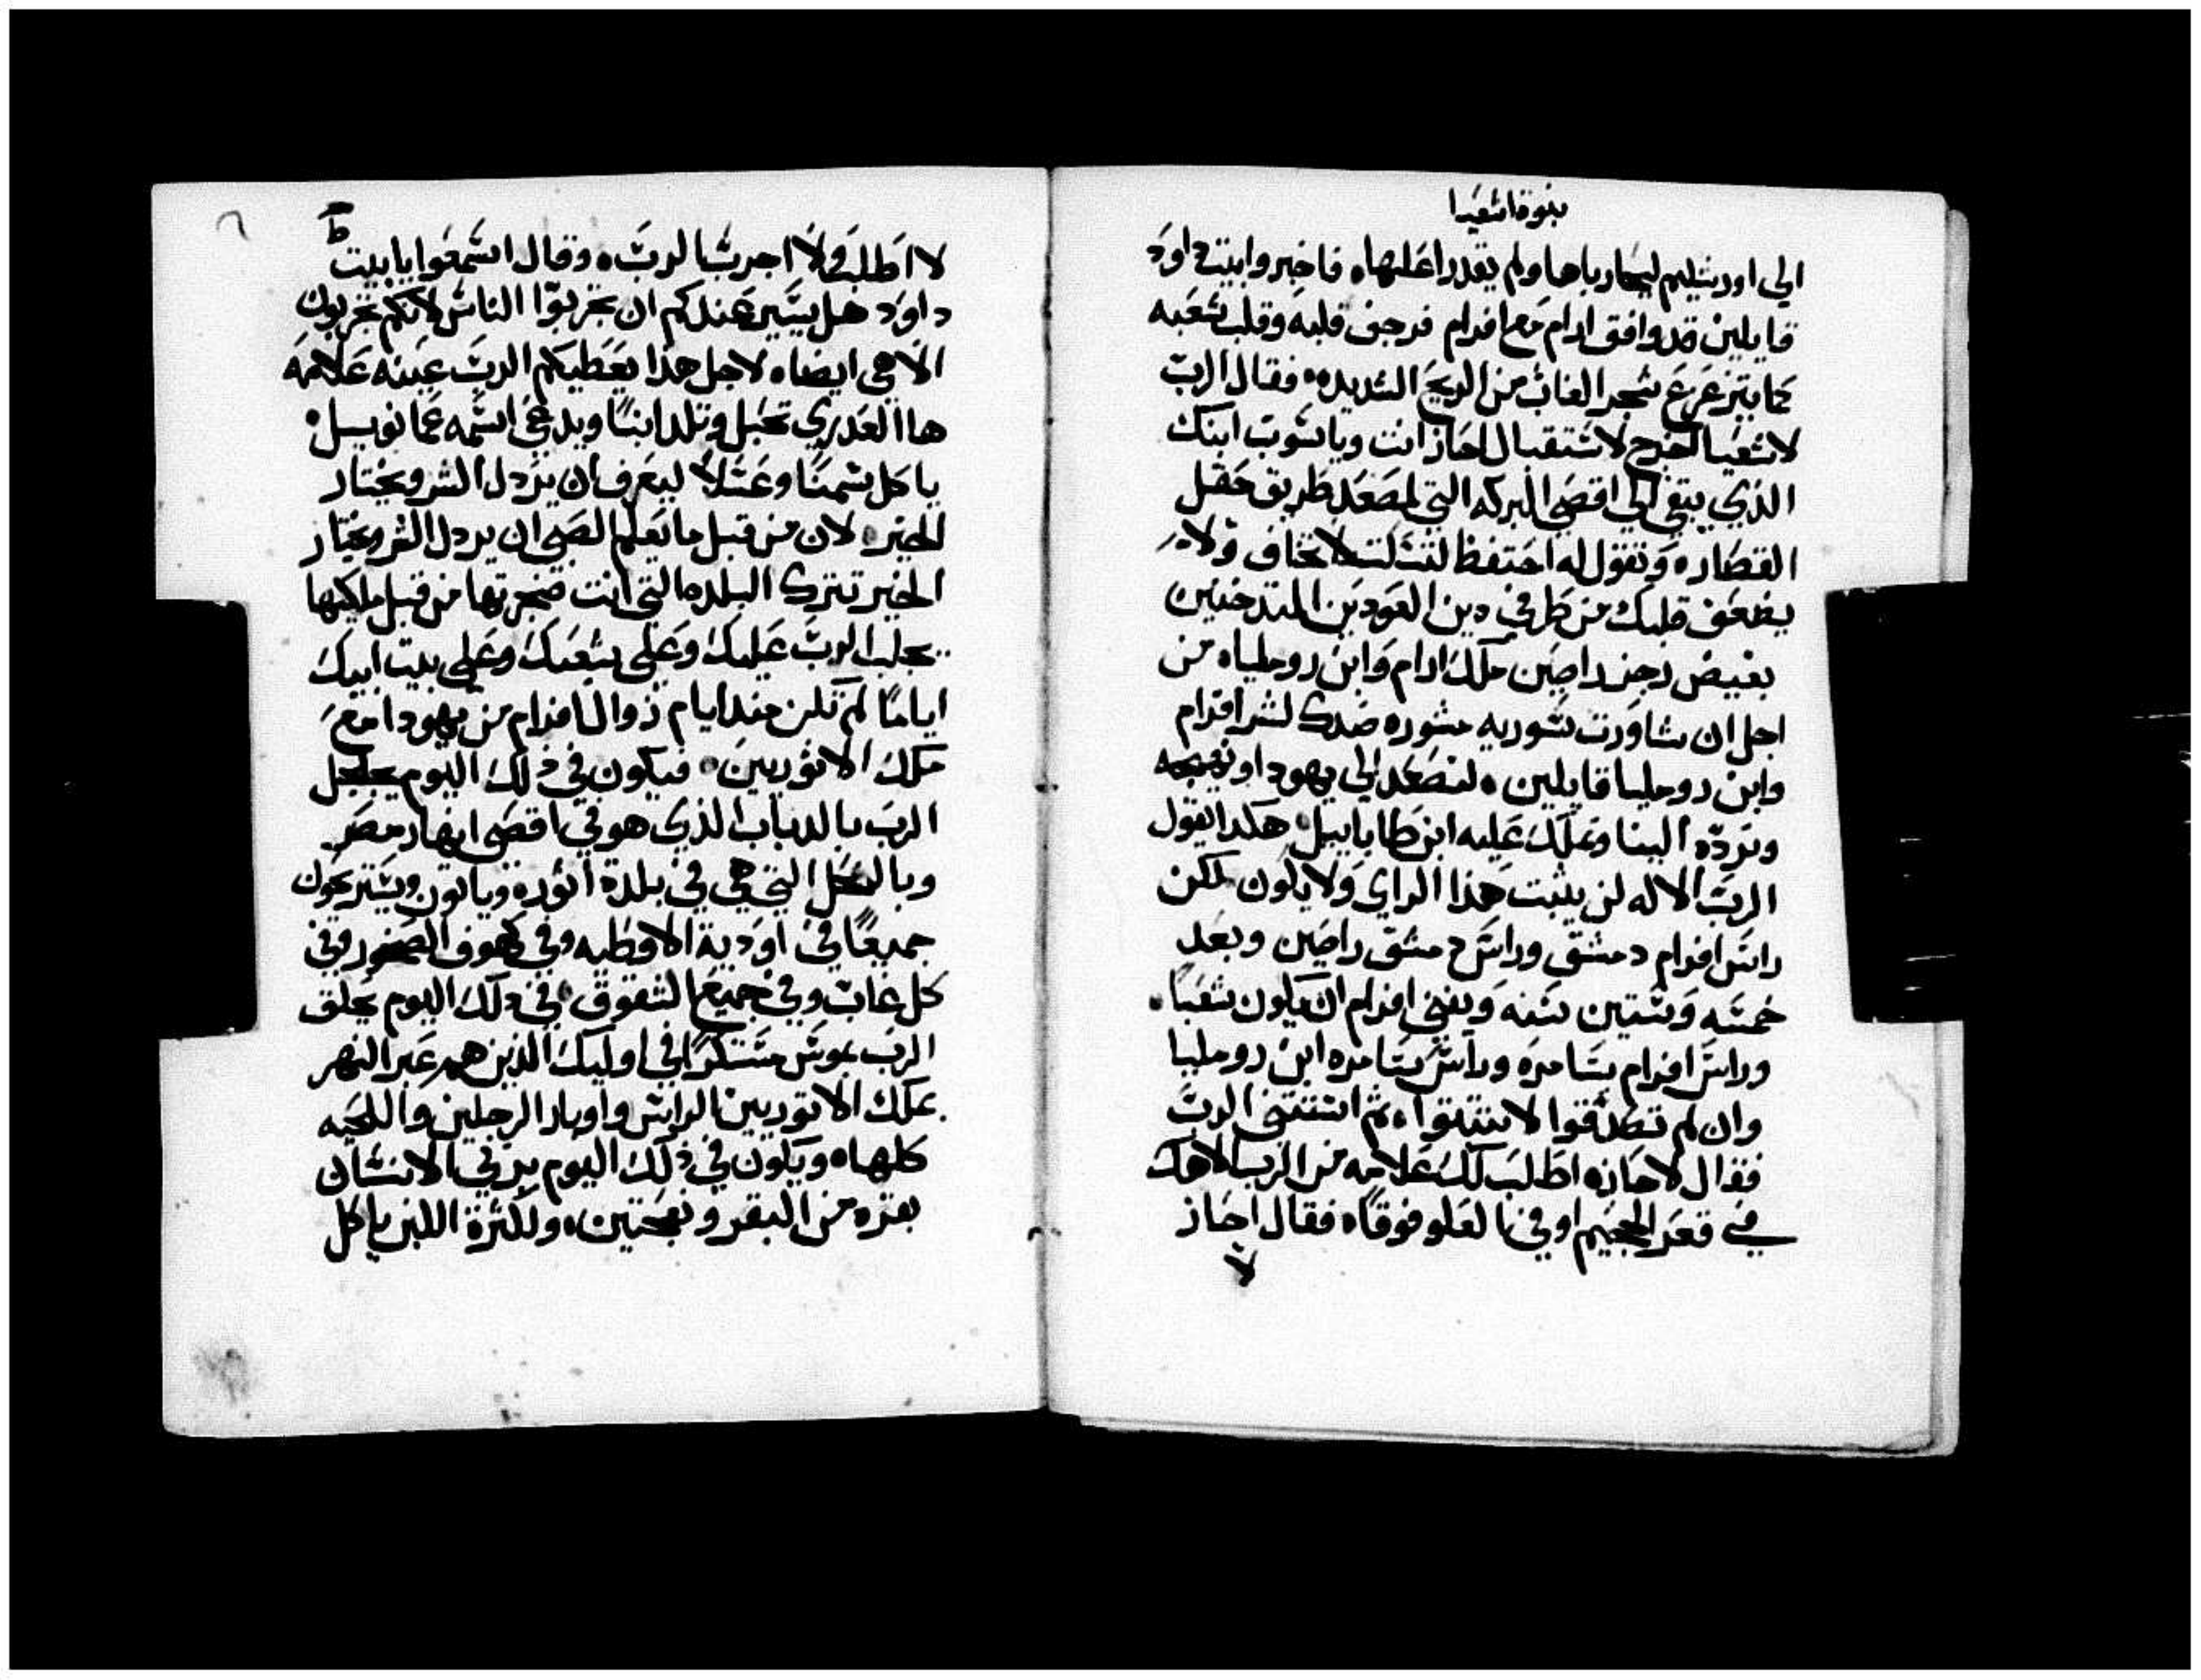 نبوة اشعيا
الى اورشليم ليحارباها ولم يقدرا عليها، فاخبروا بيت داود
قايلين قد وافق ارام مع افرام فرجف قلبه وقلب شعبه
كما يتزعزع شجر الغاب من الريح الشديده، فقال الرب
لاشعيا اخرج لاستقبال احاز انت وياسوب ابنك
الذي بقي الى اقصى البركه التي لمصعد طريق حقل
القصاره وتقول له احتفظ لتسكت لا تخاف ولا
يضعف قلبك من طرفي دين العودين المتدخنين
بغيض رجز راصين ملك ارام وابن روملياه من
اجل ان شاورت سوريه مشوره ضدك لشر افرام
وابن روميليا قايلين، لنصعد الى يهودا
ونرده الينا ونملك عليه ابن طاباييل هكدا يقول
الرب الاله لن يثبت هذا الراي ولا يكون لكن
راس افرام دمشق وراس دمشق راصين وبعد
خمسه وستين سنه ويفني افرام ان يكون شعبا،
وراس افرام سامره وراس سامره ابن روميليا
وان لم تصدقوا لا تثبتوا، ثم استثنى الرب
فقال لاحازه اطلب لك علامه من الرب الاهك
في قعر الجحيم او في العلو فوقا، فقال احاز
لا
ط
لا اطلب ولا اجرب الرب، وقال اسمعوا يا بيت
داود هل يسير عندكم ان تجربوا الناس لانكم تجربون
الاهي ايضا، لاجل هذا يعطيكم الرب عينه علامه
ها العدري تحبل وتلد ابنا ويدعى اسمه عمانوييل،
ياكل سمنا وعسلا ليعرف ان يردل الشر ويختار
الخير، لان من قبل ما يعلم الصبي ان يردل الشر ويختار
الخير تترك البلده التي انت ضجرتها من قبل ملكيها
يجلب الرب عليك وعلى شعبك وعلى بيت ابيك
اياما لم تكن مند ايام زوال افرام من يهودا مع
ملك الاثوريين، فيكون في ذلك اليوم
الرب بالدباب الذي هو في اقصى انهار مصر
وبالنحل التي هي في بلدة اثوره وياتون ويستريحون
جميعا في اودية الاوطيه وفي كهوف الصخور وفي
كل غاب وفي جميع الشقوق، في دلك اليوم يحلق
الرب بموس مستكرا في اوليك الذين هم عبر النهر
بملك الاثوريين الراس واوبار الرجلين واللحيه
كلها، ويكون في ذلك اليوم يربي الانسان
بقره من البقر ونعجتين، ولكثرة اللبن ياكل